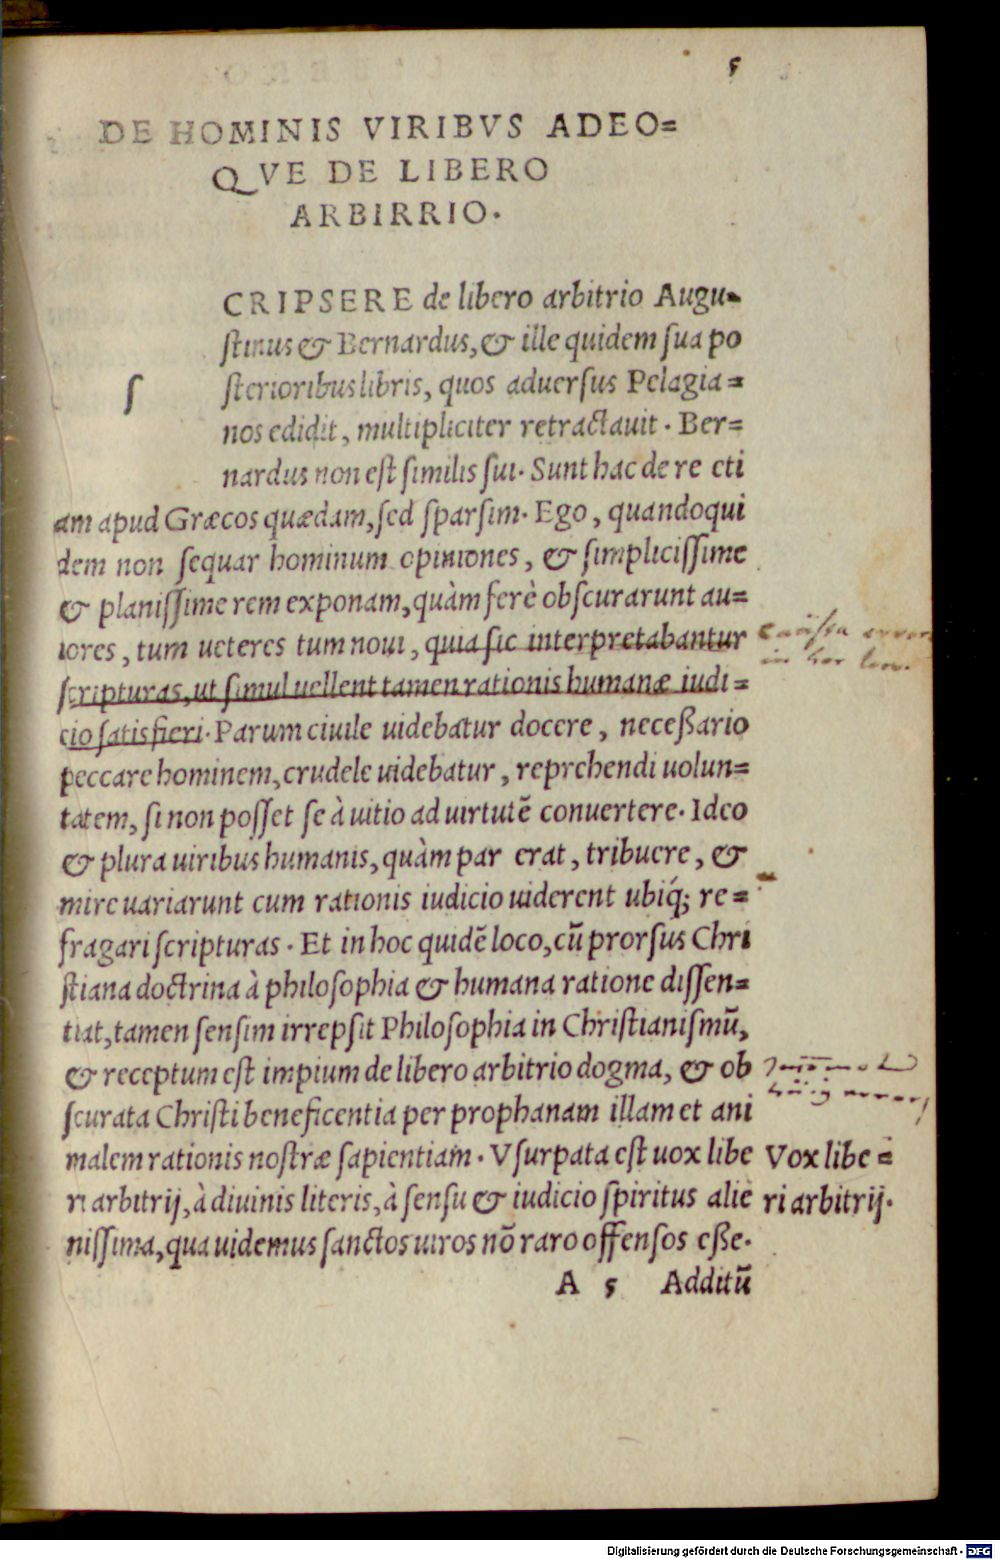 5
DE HOMINIS VIRIBVS ADEO=
QVE DE LIBERO
ARBIRRIO.
ſ
CRIPSERE de libero arbitrio Augu=
ſtinus & Bernardus, & ille quidem ſua po
ſterioribus libris, quos aduerſus Pelagia=
nos edidit, multipliciter retractauit. Ber=
nardus non eſt ſimilis ſui. Sunt hac de re eti
am apud Græcos quædam, ſed ſparſim. Ego, quandoqui
dem non ſequar hominum opiniones, & ſimpliciſſime
& planiſſime rem exponam, quàm ferè obſcurarunt au=
tores, tum ueteres tum noui, quia ſic interpretabantur
ſcripturas, ut ſimul uellent tamen rationis humanæ iudi=
cio ſatisfieri. Parum ciuile uidebatur docere, neceßario
peccare hominem, crudele uidebatur, reprehendi uolun=
tatem, ſi non poſſet ſe à uitio ad uirtutē conuertere. Ideo
& plura uiribus humanis, quàm par erat, tribuere, &
mire uariarunt cum rationis iudicio uiderent ubiq́; re=
fragari ſcripturas. Et in hoc quidē loco, cū prorſus Chri
ſtiana doctrina à philoſophia & humana ratione diſſen=
tiat, tamen ſenſim irrepſit Philoſophia in Chriſtianiſmū,
& receptum eſt impium de libero arbitrio dogma, & ob
ſcurata Chriſti beneficentia per prophanam illam et ani
malem rationis noſtræ ſapientiam. Vſurpata eſt uox libe
ri arbitrij, à diuinis literis, à ſenſu & iudicio ſpiritus alie
niſſima, qua uidemus ſanctos uiros nō raro offenſos eße.
A 5 Additū
error
in hoc
Vox libe=
ri arbitrij.
Digitalisierung gefördert durch die Deutsche Forschungsgemeinschaft - DFG